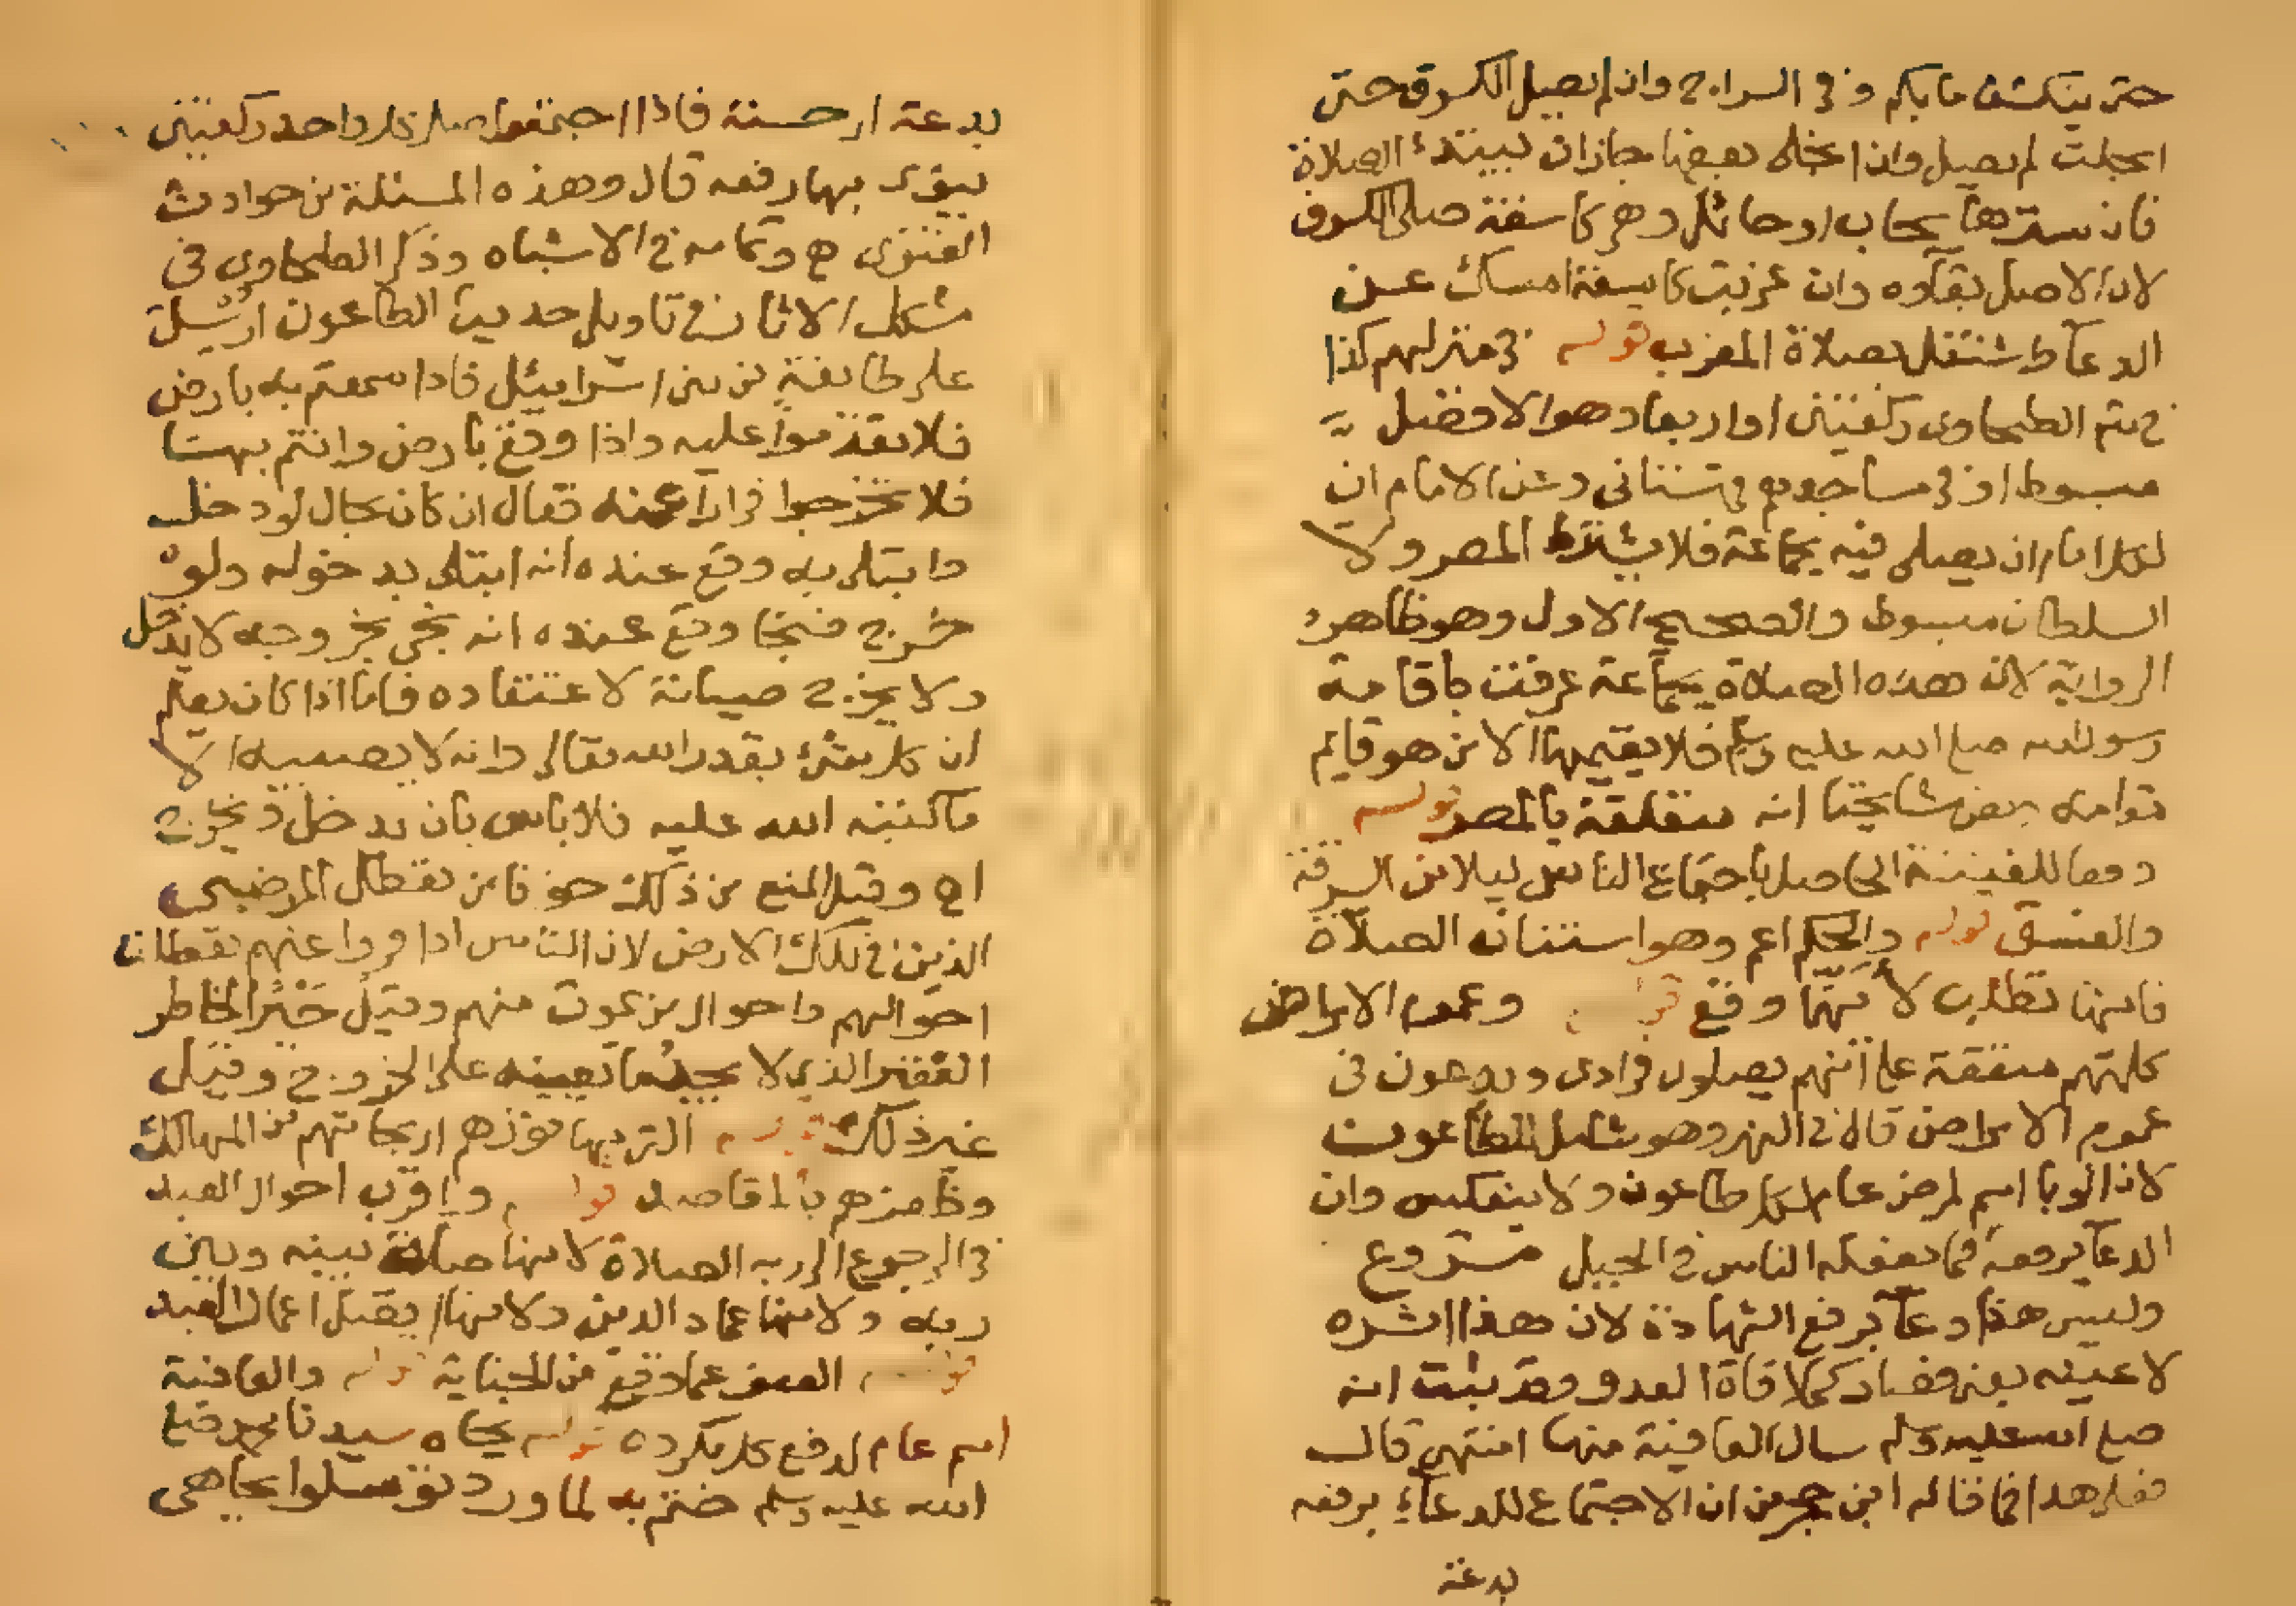 حتى ينكشف ما بكم وفي السراج وان لم يصل الكسوف حتى
انجلت لم يصل وان انجلى بعضها جازان يبتدئ الصلاة
فان سترها سحاب او حائل وهي كاسفة صلى الكسوف
لان الاصل بقاؤه وان غربت كاسفة امسك عن
الدعآ واشتغل بصلاة المغرب قوله في منزلهم كذا
في شم الطحاوى ركعتين او اربعا وهو الافضل
مبسوط او في مساجدهم قهستانى وعن الامام ان
لكل امام ان يصلى فيه بجماعة فلا يشترط المصر ولا
السلطان مبسوط والصحيح الاول وهو ظاهر
الرواية لان هذه الصلاة بجماعة عرفت باقامة
رسول الله صلى الله عليه وسلم فلا يقيمها الا من هو قايم
مقامه بعض مشايخنا انه متعلقة بالمصر قوله
دفعا للفتنة الحاصل باجتماع الناس ليلا من السرقة
والفسق قوله والحكم اعم وهو استنان الصلاة
فانها تطلب لا وقع قوله وعموم الامراض
كلمتهم متفقة على انهم يصلون فرادى ويدعون في
عموم الامراض قال في النهر وهو شامل للطاعون
لان الوبا اسم لمرض عام فكل طاعون ولا ينعكس وان
الدعآ برفعه كما يفعله الناس في الجبل مشروع
وليس هذا دعآ برفع الشهادة لان هذا اثره
لا عينه يعنى وصار كملاقاة العدو وقد ثبت انه
صلى الله عليه وسلم سال العافية منها انتهى قال
فعلى هذا فما قاله ابن حجر من ان الاجتماع للدعآء برفعه
بدعة
بدعة اي حسنة فاذا اجتمعوا صلى كل واحد ركعتين
ينوى بها رفعه قال وهذه المسئلة من حوادث
الفتوى اه وتمامه في الاشباه وذكر الطحاوي في
مشكل الاثار في تاويل حديث الطاعون ارسل
على طايفة من بنى اسرايئل فاذا سمعتم به بارض
فلا تقدموا عليه واذا وقع بارض وانتم بها
فلا تخرجوا فرارا منه فقال ان كان بحال لو دخل
وابتلى به وقع عنده انه ابتلى بدخوله ولو
خرج فنجا وقع عنده انه نجى بخروجه لا يدخل
ولا يخرج صيانة لاعتقاده فاما اذا كان يعلم
ان كل شئ بقدر الله تعالى وانه لا يصيبه الا
ما كتبه الله عليه فلا باس بان يدخل ويخرج
اه وقيل المنع من ذلك خوفا من تعطل المرضى
الذين في تلك الارض لان الناس اذا فروا عنهم تعطلت
احوالهم واحوال من يموت منهم وقيل جبر الخاطر
الفقير الذي لا يجد ما يعينه على الخروج وقيل
غير ذلك قوله التى بها فوزهم اي نجاتهم من المهالك
وظفرهم بالمقاصد قوله واقرب احوال العبد
في الرجوع الى ربه الصلاة لانها صلة بينه وبين
ربه ولانها عماد الدين ولانها يقبل اعمال العبد
قوله العفو عما وقع من الجناية قوله والعافية
اسم عام لدفع كل مكروه قوله بجاه سيدنا محمد صلى
الله عليه وسلم ختم به لما ورد توسلوا بجاهى